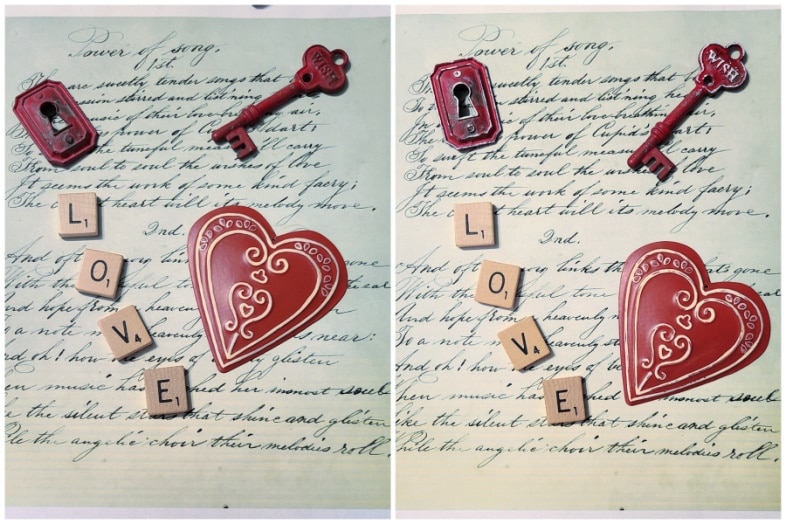 Power of song.
1st.
WISH
are sweetly tender songs that
sion stirred and list'ning
music of their love-breathing air,
power of C dart:
the tuneful meas 'll carry
From soul to soul the wishes of love
It seems the work of some kind faery;
The c heart will its melody move.
2nd.
L1
And oft
O1
With th ful
And hope fro heavenly
V4
To a note heavenly
near:
And oh! how the eyes of glisten
E1
en music has ed her inmost soul
ke the silent stars that shine and glisten
ile the angelic choir their melodies roll.
Power of song,
1st.
WISH
sweetly tender songs that
stirred and list'ning he
music of their love-breathing air,
power of Cupid's dart:
To swift the tuneful meas carry
From soul to soul the wishes of love
It seems the work of some kind faery;
The c heart will its melody move.
L1
2nd.
And oft ow links th ts gone
O1
With the ful tone
And hope from heavenly
V4
To a note heavenly st
And oh! how the eyes of be
E1
When music has hed inmost soul
ike the silent stars that shine and glisten
hile the angelic choir their melodies roll.